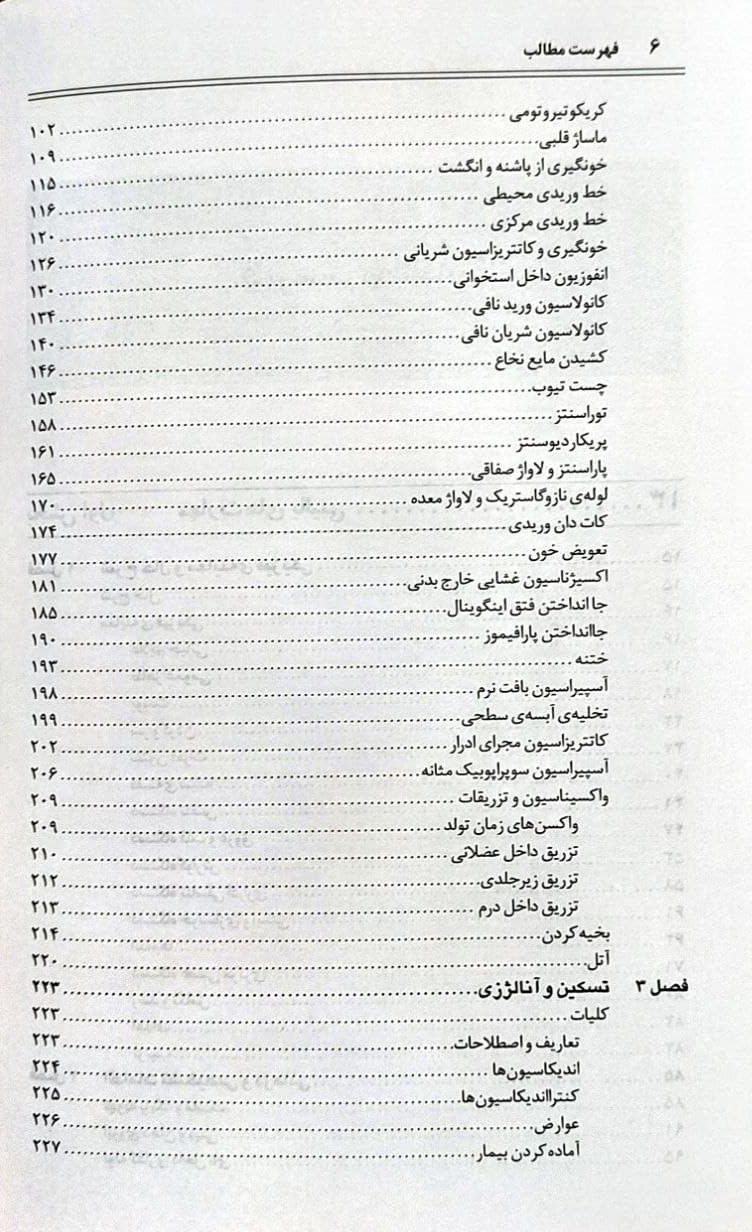 ۶ فهرست مطالب
کریکوتیروتومی ........ ۱۰۲
ماساژ قلبی ........ ۱۰۹
خونگیری از پاشنه و انگشت ........ ۱۱۵
خط وریدی محیطی ........ ۱۱۶
خط وریدی مرکزی ........ ۱۲۰
خونگیری و کاتتریزاسیون شریانی ........ ۱۲۶
انفوزیون داخل استخوانی ........ ۱۳۰
کانولاسیون ورید نافی ........ ۱۳۴
کانولاسیون شریان نافی ........ ۱۴۰
کشیدن مایع نخاع ........ ۱۴۶
چست تیوب ........ ۱۵۳
توراسنتز ........ ۱۵۸
پریکاردیوسنتز ........ ۱۶۱
پاراسنتز و لاواژ صفاقی ........ ۱۶۵
لوله‌ی نازوگاستریک و لاواژ معده ........ ۱۷۰
کات دان وریدی ........ ۱۷۴
تعویض خون ........ ۱۷۷
اکسیژناسیون غشایی خارج بدنی ........ ۱۸۱
جا انداختن فتق اینگوینال ........ ۱۸۵
جاانداختن پارافیموز ........ ۱۹۰
ختنه ........ ۱۹۳
آسپیراسیون بافت نرم ........ ۱۹۸
تخلیه‌ی آبسه‌ی سطحی ........ ۱۹۹
کاتتریزاسیون مجرای ادرار ........ ۲۰۲
آسپیراسیون سوپراپوبیک مثانه ........ ۲۰۶
واکسیناسیون و تزریقات ........ ۲۰۹
واکسن‌های زمان تولد ........ ۲۰۹
تزریق داخل عضلانی ........ ۲۱۰
تزریق زیرجلدی ........ ۲۱۲
تزریق داخل درم ........ ۲۱۳
بخیه کردن ........ ۲۱۴
آتل ........ ۲۲۰
فصل ۳ تسکین و آنالژزی ........ ۲۲۳
کلیات ........ ۲۲۳
تعاریف و اصطلاحات ........ ۲۲۳
اندیکاسیون‌ها ........ ۲۲۴
کنترااندیکاسیون‌ها ........ ۲۲۵
عوارض ........ ۲۲۶
آماده کردن بیمار ........ ۲۲۷